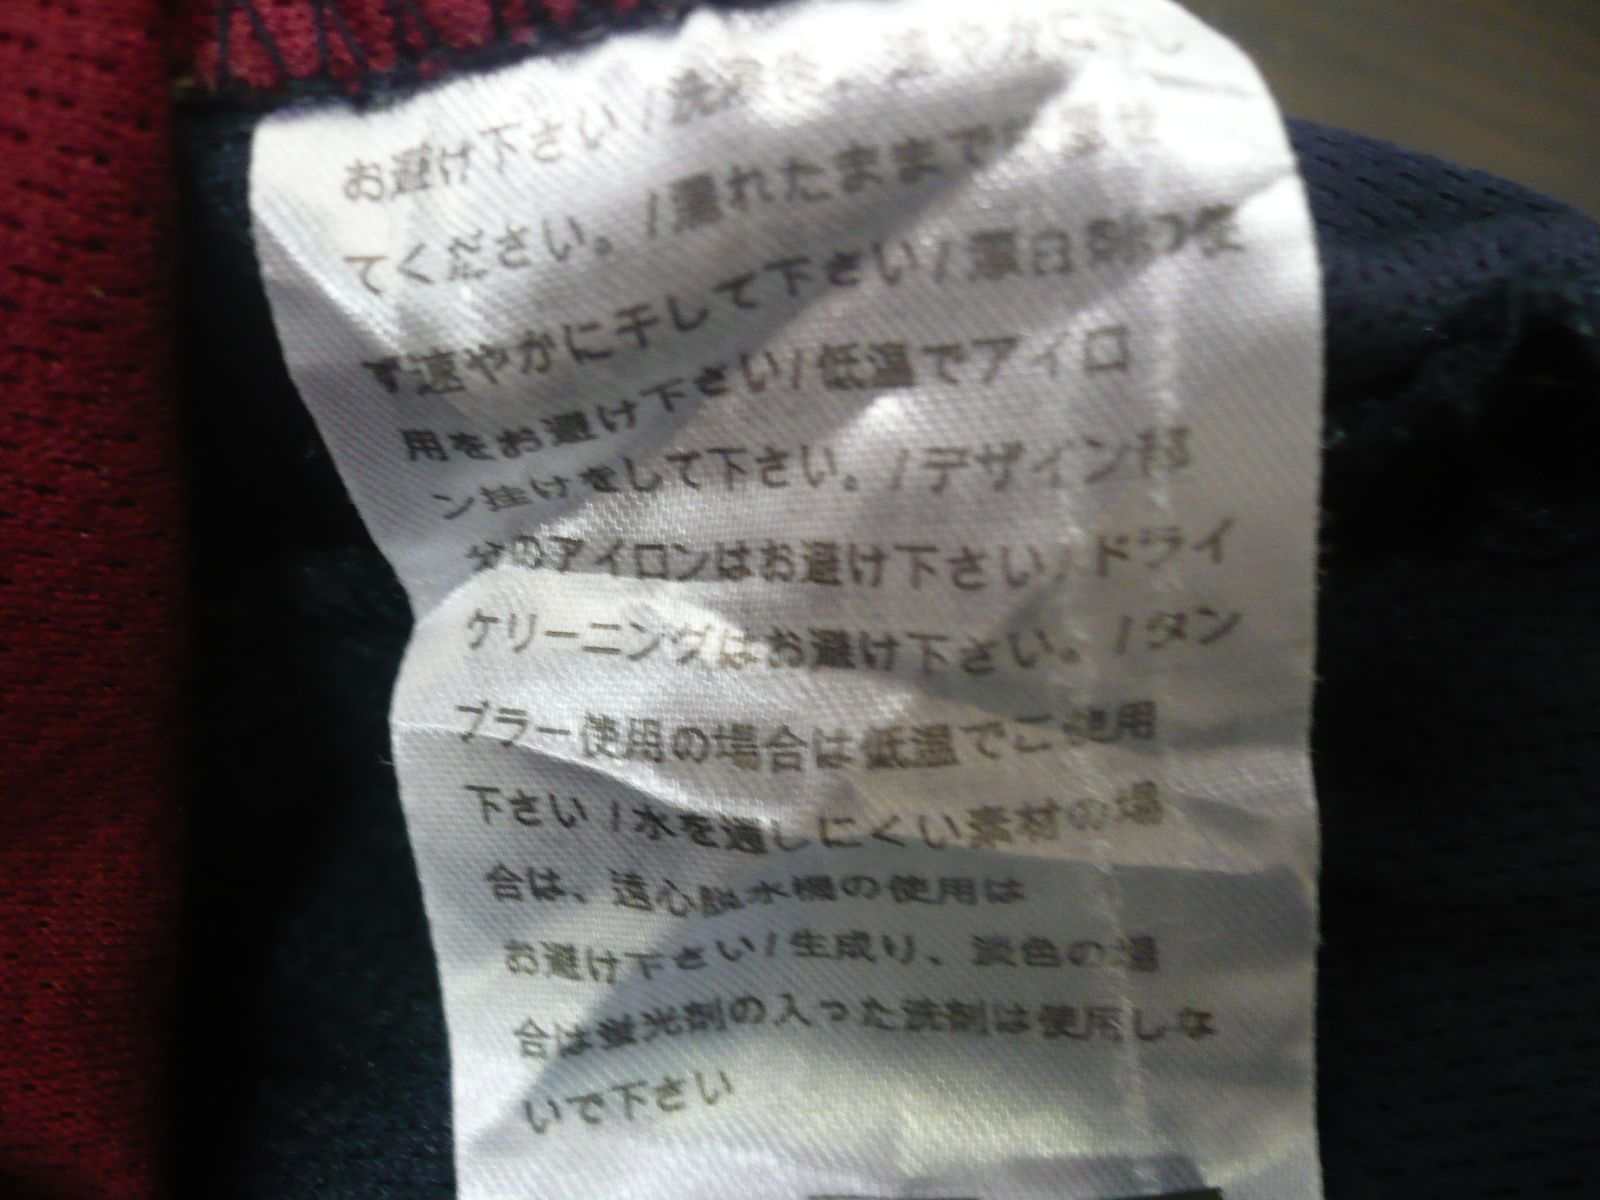 お避け下さい/洗濯後、速やかに干し
てください。/濡れたままで放置せ
ず速やかに干して下さい/漂白剤の使
用をお避け下さい/低温でアイロ
ン掛けをして下さい。/デザイン部
分のアイロンはお避け下さい/ドライ
クリーニングはお避け下さい。/タン
ブラー使用の場合は低温でご使用
下さい/水を通しにくい素材の場
合は、遠心脱水機の使用は
お避け下さい/生成り、淡色の場
合は蛍光剤の入った洗剤は使用しな
いで下さい